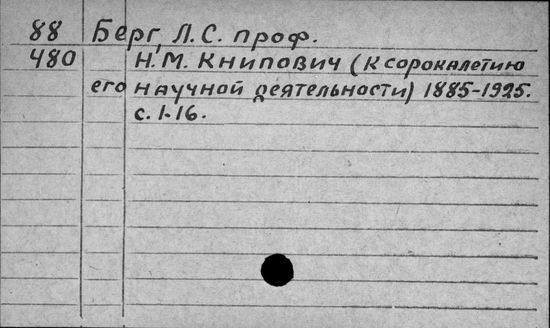 88 Берг, Л.С. проф.
480 Н.М. Книпович (к сорокалетию
его научной деятельности) 1885-1925.
с. 1-16.